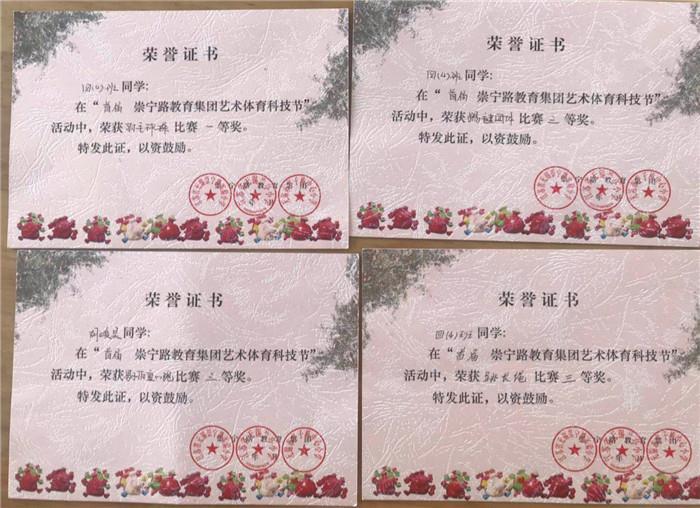 荣誉证书
四(4)班同学:
在“首届 崇宁路教育集团艺术体育科技节”
活动中，荣获 比赛 一 等奖。
特发此证，以资鼓励。
荣誉证书
四(4)班同学:
在“首届 崇宁路教育集团艺术体育科技节”
活动中，荣获踢毽团体比赛 三 等奖。
特发此证，以资鼓励。
荣誉证书
同学:
在“首届 崇宁路教育集团艺术体育科技节”
活动中，荣获 比赛 三 等奖。
特发此证，以资鼓励。
荣誉证书
四(4)班同学:
在“首届 崇宁路教育集团艺术体育科技节”
活动中，荣获 跳长绳 比赛 三 等奖。
特发此证，以资鼓励。